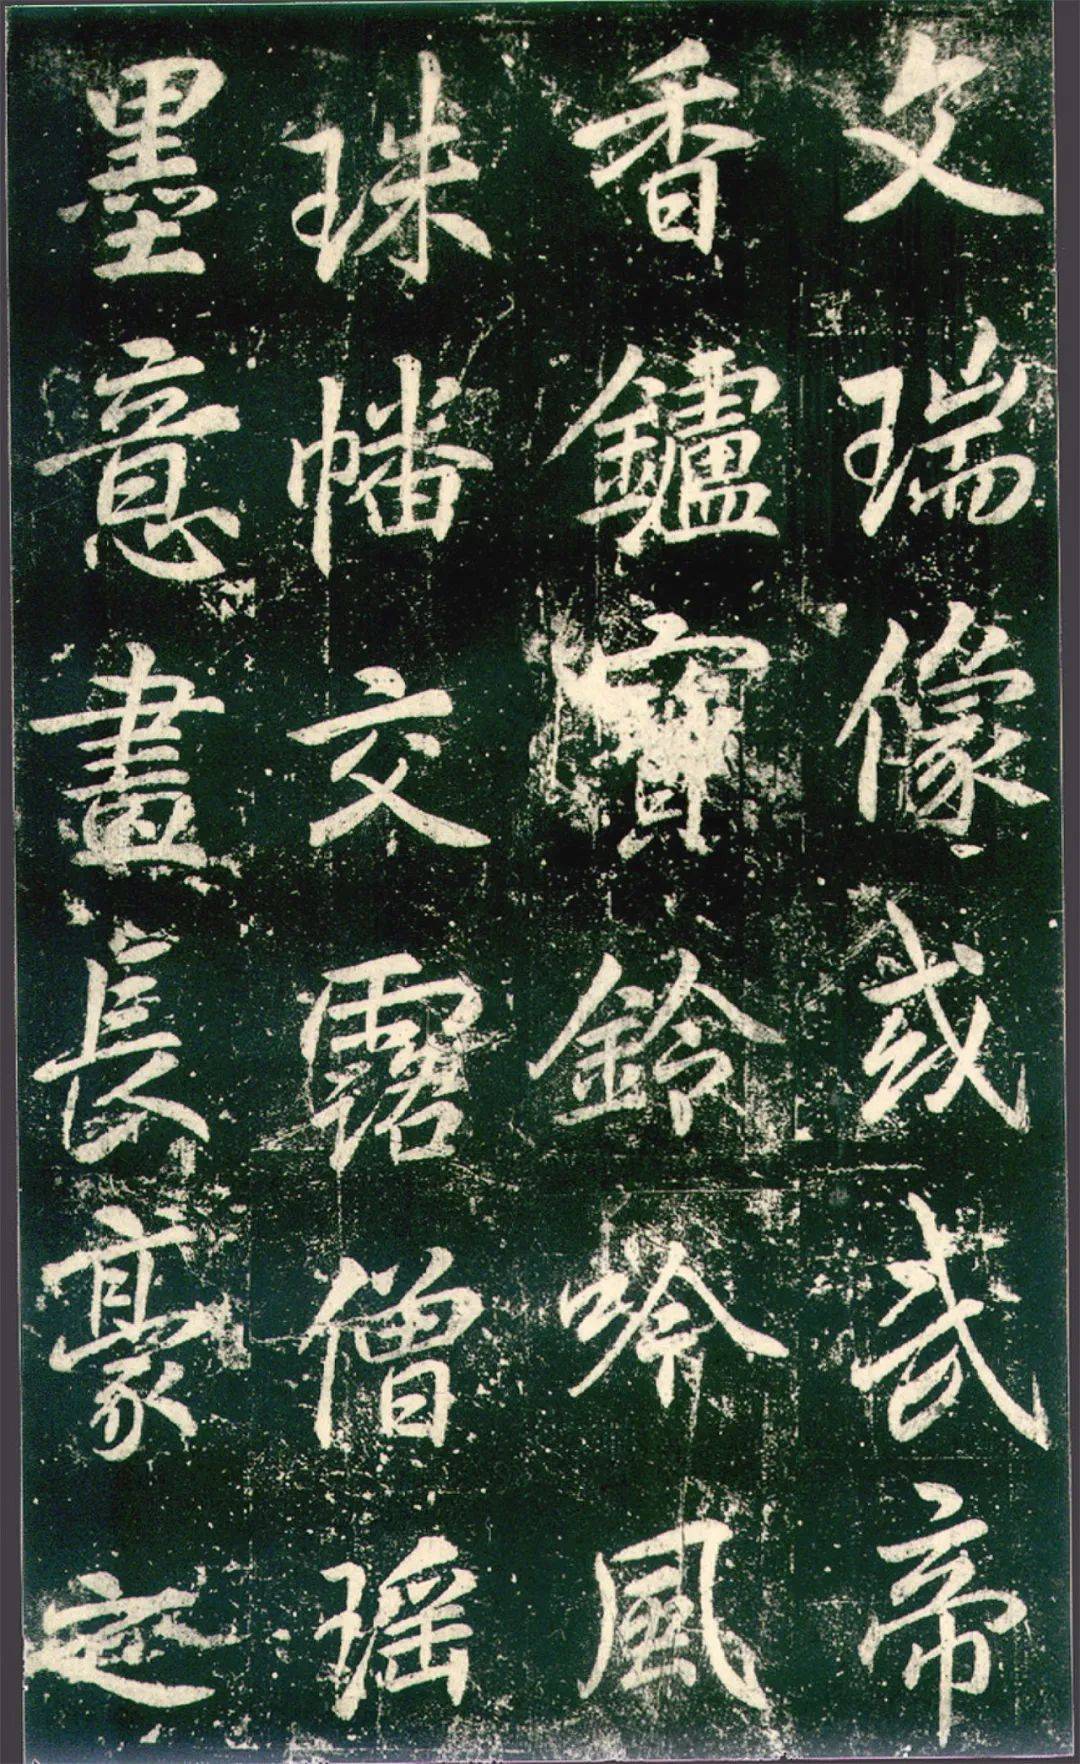 文瑞像或武帝
香鑪寶鈴吟風
珠幡交露僧瑤
墨意畫長豪定